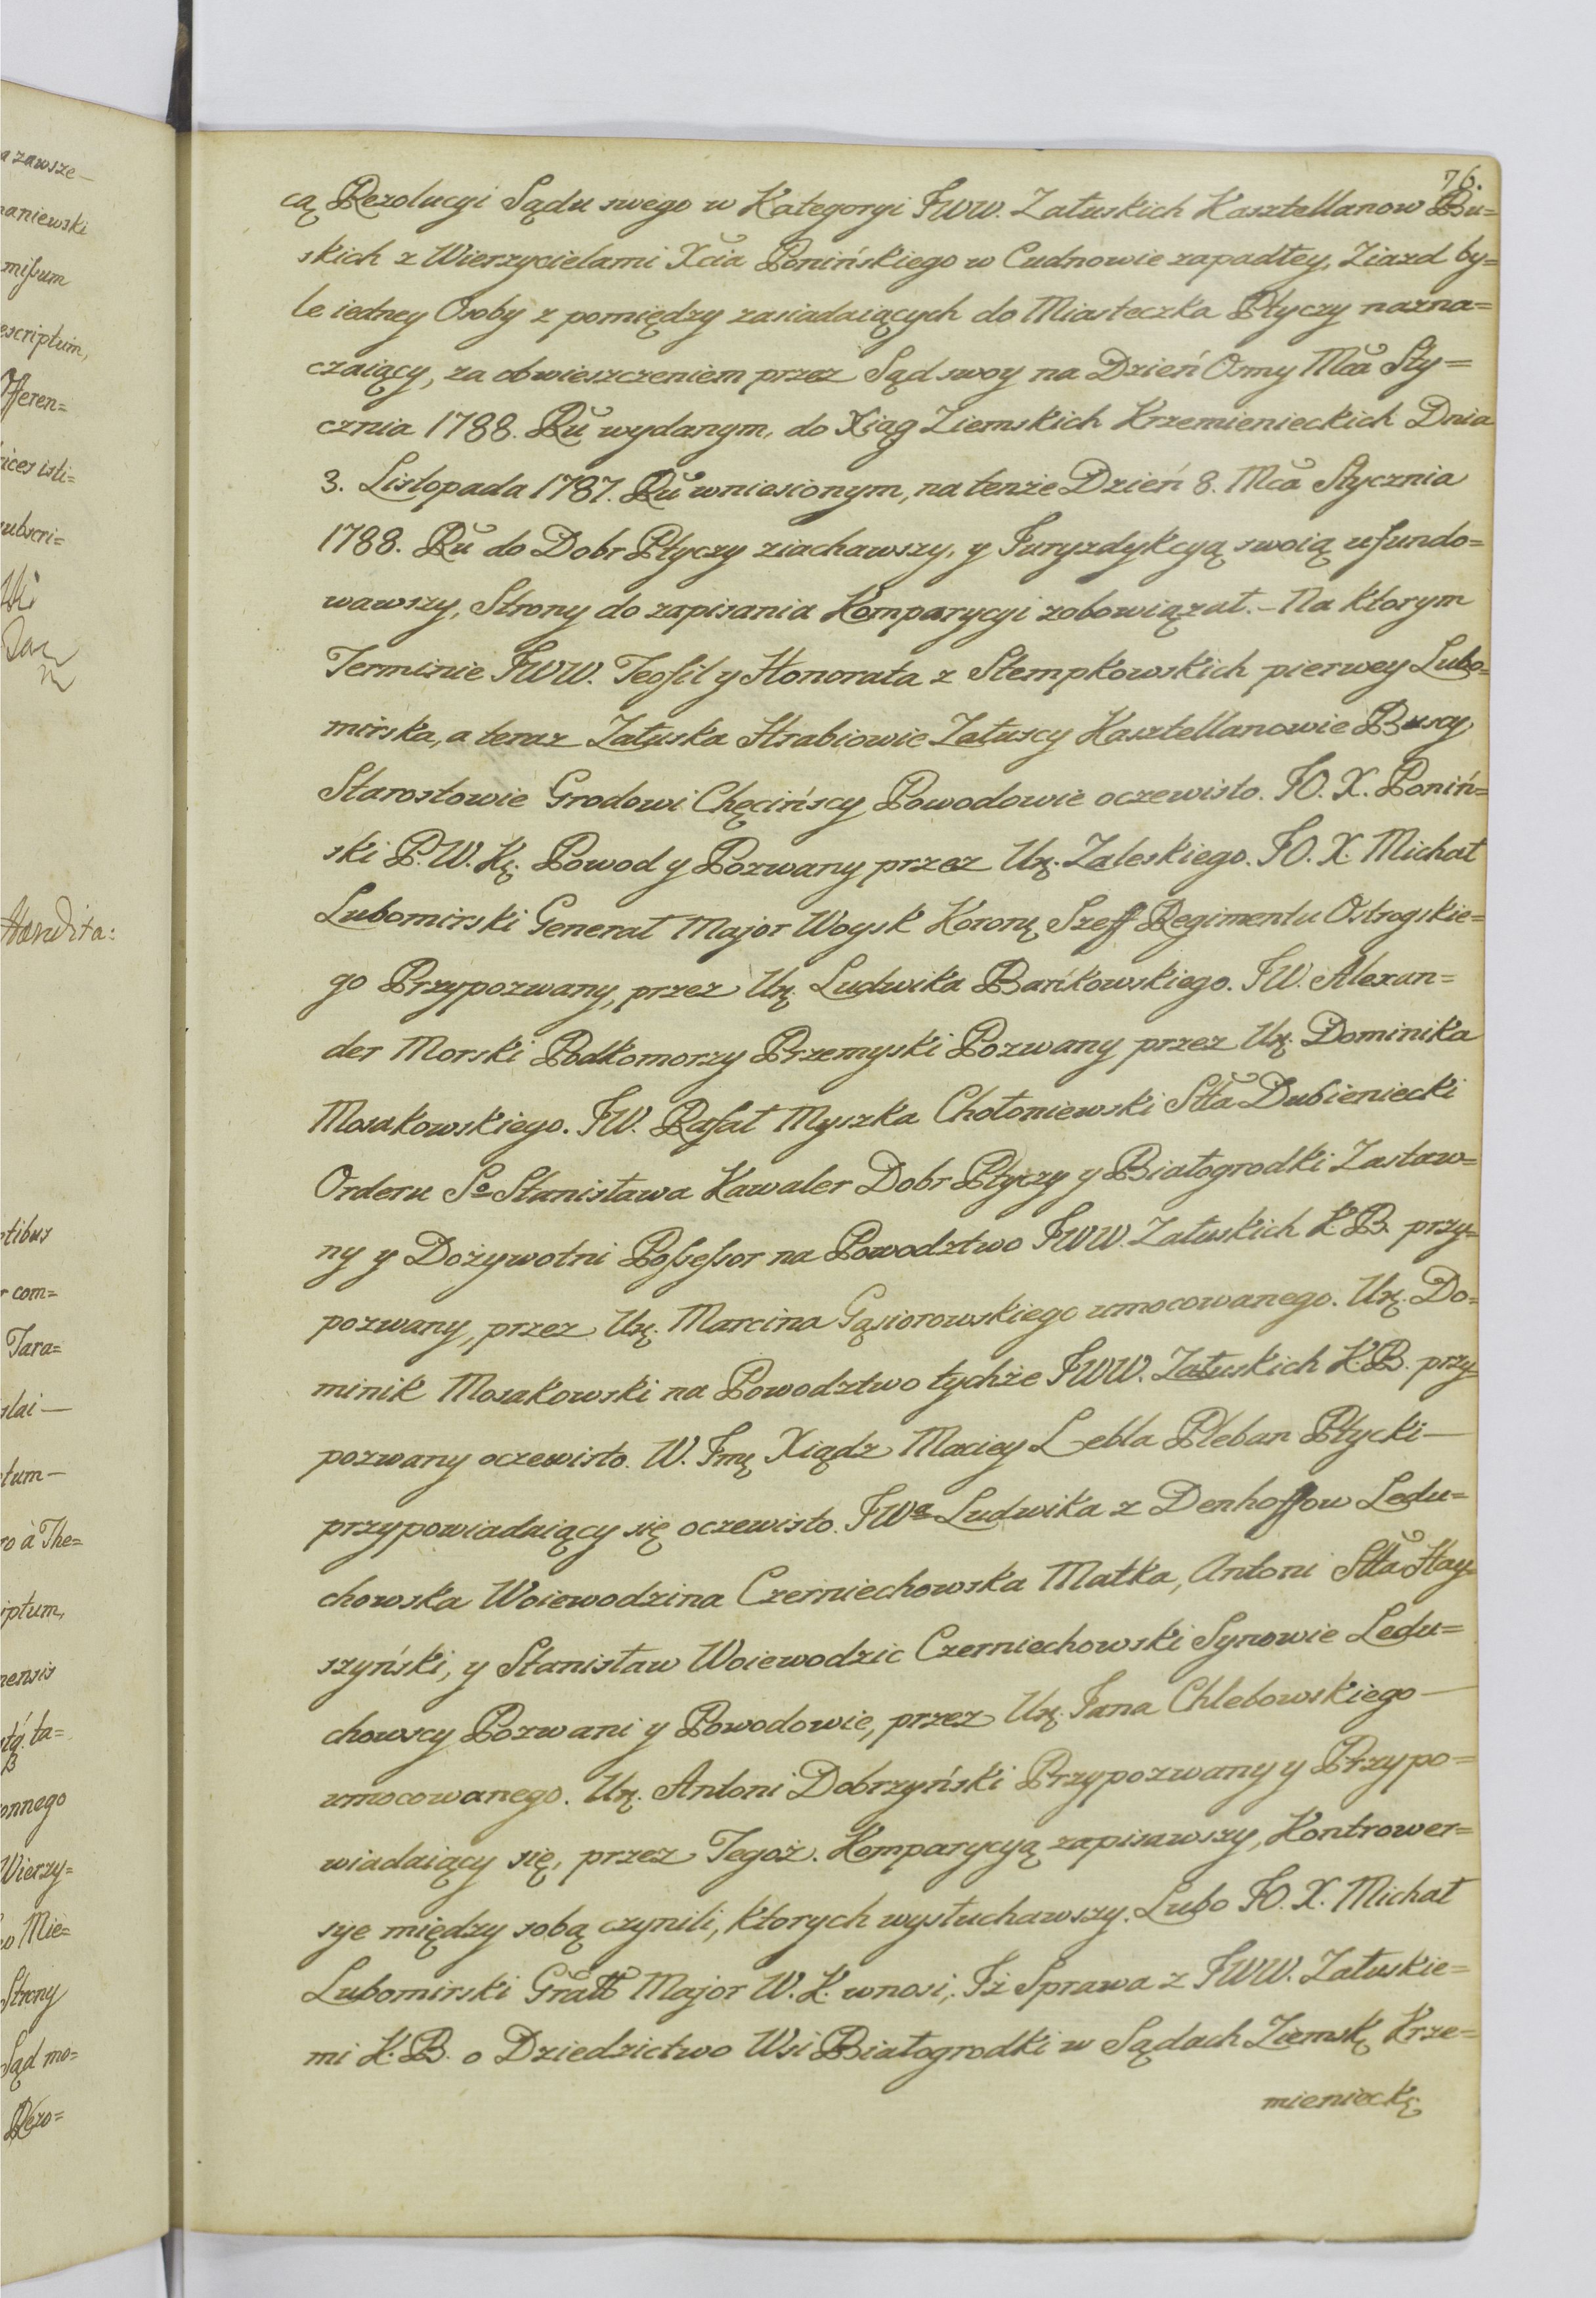 76.
cą Rezolucyi Sądu swego w Kategoryi JWW. Załuskich Kasztellanow Bu=
skich z Wierzycielami Xcia Ponińskiego w Cudnowie zapadłey, Ziazd by=
le iedney Osoby z pomiędzy zasiadaiących do Miasteczka Ptyczy nazna=
czaiący, za obwieszczeniem przez Sąd swoy na Dzień Osmy Mca Sty=
cznia 1788. Ru wydanym, do Xiąg Ziemskich Krzemienieckich Dnia
3. Listopada 1787. Ru wniesionym, na tenże Dzień 8. Mca Stycznia
1788. Ru do Dobr Ptyczy ziachawszy, y Juryzdykcyą swoią ufundo=
wawszy, Strony do zapisania Komparycyi zobowiązał. – Na ktorym
Terminie JWW. Teofil y Honorata z Stempkowskich pierwey Lubo=
mirska, a teraz Załuska Hrabiowie Załuscy Kasztellanowie Buscy
Starostowie Grodowi Chęcińscy Powodowie oczewisto. JO. X. Poniń=
ski P. W. Kę. Powod y Pozwany przez Urę. Zaleskiego. JO. X. Michał
Lubomirski Generał Major Woysk Koronę Szeff Regimentu Ostrogskie=
go Przypozwany, przez Urę. Ludwika Bańkowskiego. JW. Alexan=
der Morski Podkomorzy Przemyski Pozwany przez Urę. Dominika
Mosakowskiego. JW. Rafał Myszka Chołoniewski Stta Dubieniecki
Orderu So Stanisława Kawaler Dobr Ptyczy y Białogrodki Zastaw=
ny y Dożywotni Possessor na Powodztwo JWW. Załuskich K. B. przy=
pozwany, przez Urę. Marcina Gąsiorowskiego umocowanego. Urę. Do=
minik Mosakowski na Powodztwo tychże JWW. Załuskich K. B. przy=
pozwany oczewisto. W. Jmę Xiądz Maciey Lebla Pleban Ptycki —
przypowiadaiący się oczewisto. JWa Ludwika z Denhoffow Ledu=
chowska Woiewodzina Czerniechowska Matka, Antoni Stta Hay=
szyński, y Stanisław Woiewodzic Czerniechowski Synowie Ledu=
chowscy Pozwani y Powodowie, przez Urę. Jana Chlebowskiego —
umocowanego. Urę. Antoni Dobrzyński Przypozwany y Przypo=
wiadaiący się, przez Tegoż. Komparycyą zapisawszy, Kontrower=
sye między sobą czynili, ktorych wysłuchawszy. Lubo JO. X. Michał
Lubomirski Grałł Major W. K. wnosi, Iż Sprawa z JWW. Załuskie=
mi K. B. o Dziedzictwo Wsi Białogrodki w Sądach Ziemskę Krze=
mienieckę
a zawsze —
naniewski
missum
escriptum,
fferen=
ices isti=
ubscri=
Handita:
tibus
com=
Tara=
slai —
tum —
ro à The=
iptum,
nensis
ta=
onnego
Wierzy=
Mie=
Strony
Sąd mo=
Rezo=